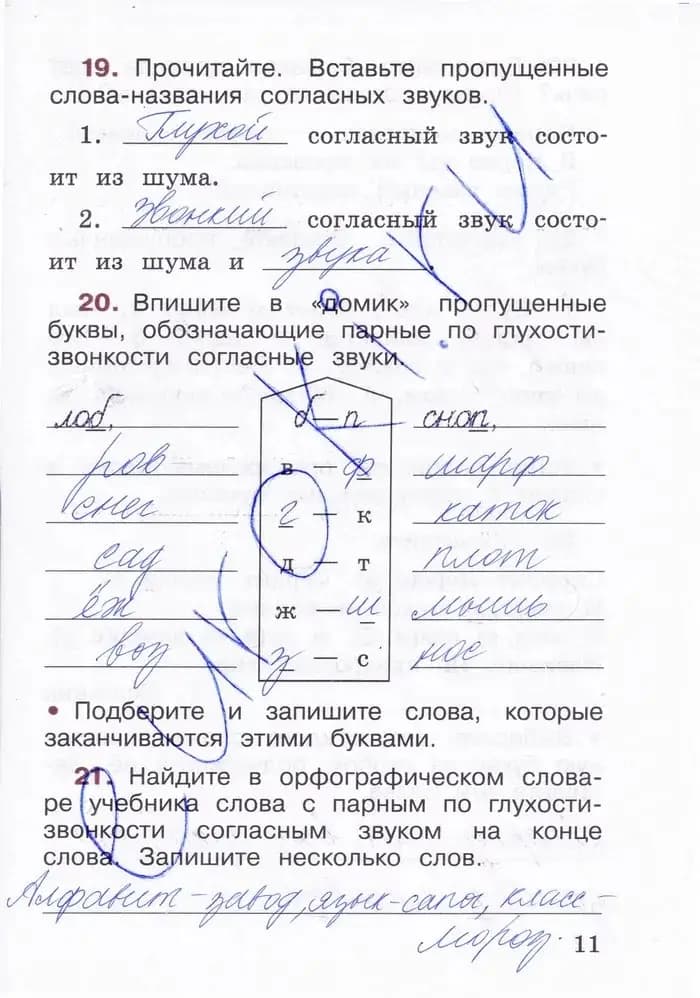 19. Прочитайте. Вставьте пропущенные
слова-названия согласных звуков.
1. Глухой согласный звук состо-
ит из шума.
2. Звонкий согласный звук состо-
ит из шума и звука.
20. Впишите в «домик» пропущенные
буквы, обозначающие парные по глухости-
звонкости согласные звуки.
лоб, б — п сноп,
ров в — ф шарф
снег г — к каток
сад д — т плот
ёж ж — ш мышь
воз з — с нос
• Подберите и запишите слова, которые
заканчиваются этими буквами.
21. Найдите в орфографическом слова-
ре учебника слова с парным по глухости-
звонкости согласным звуком на конце
слова. Запишите несколько слов.
Алфавит – завод, язык – сапог, класс –
мороз. 11